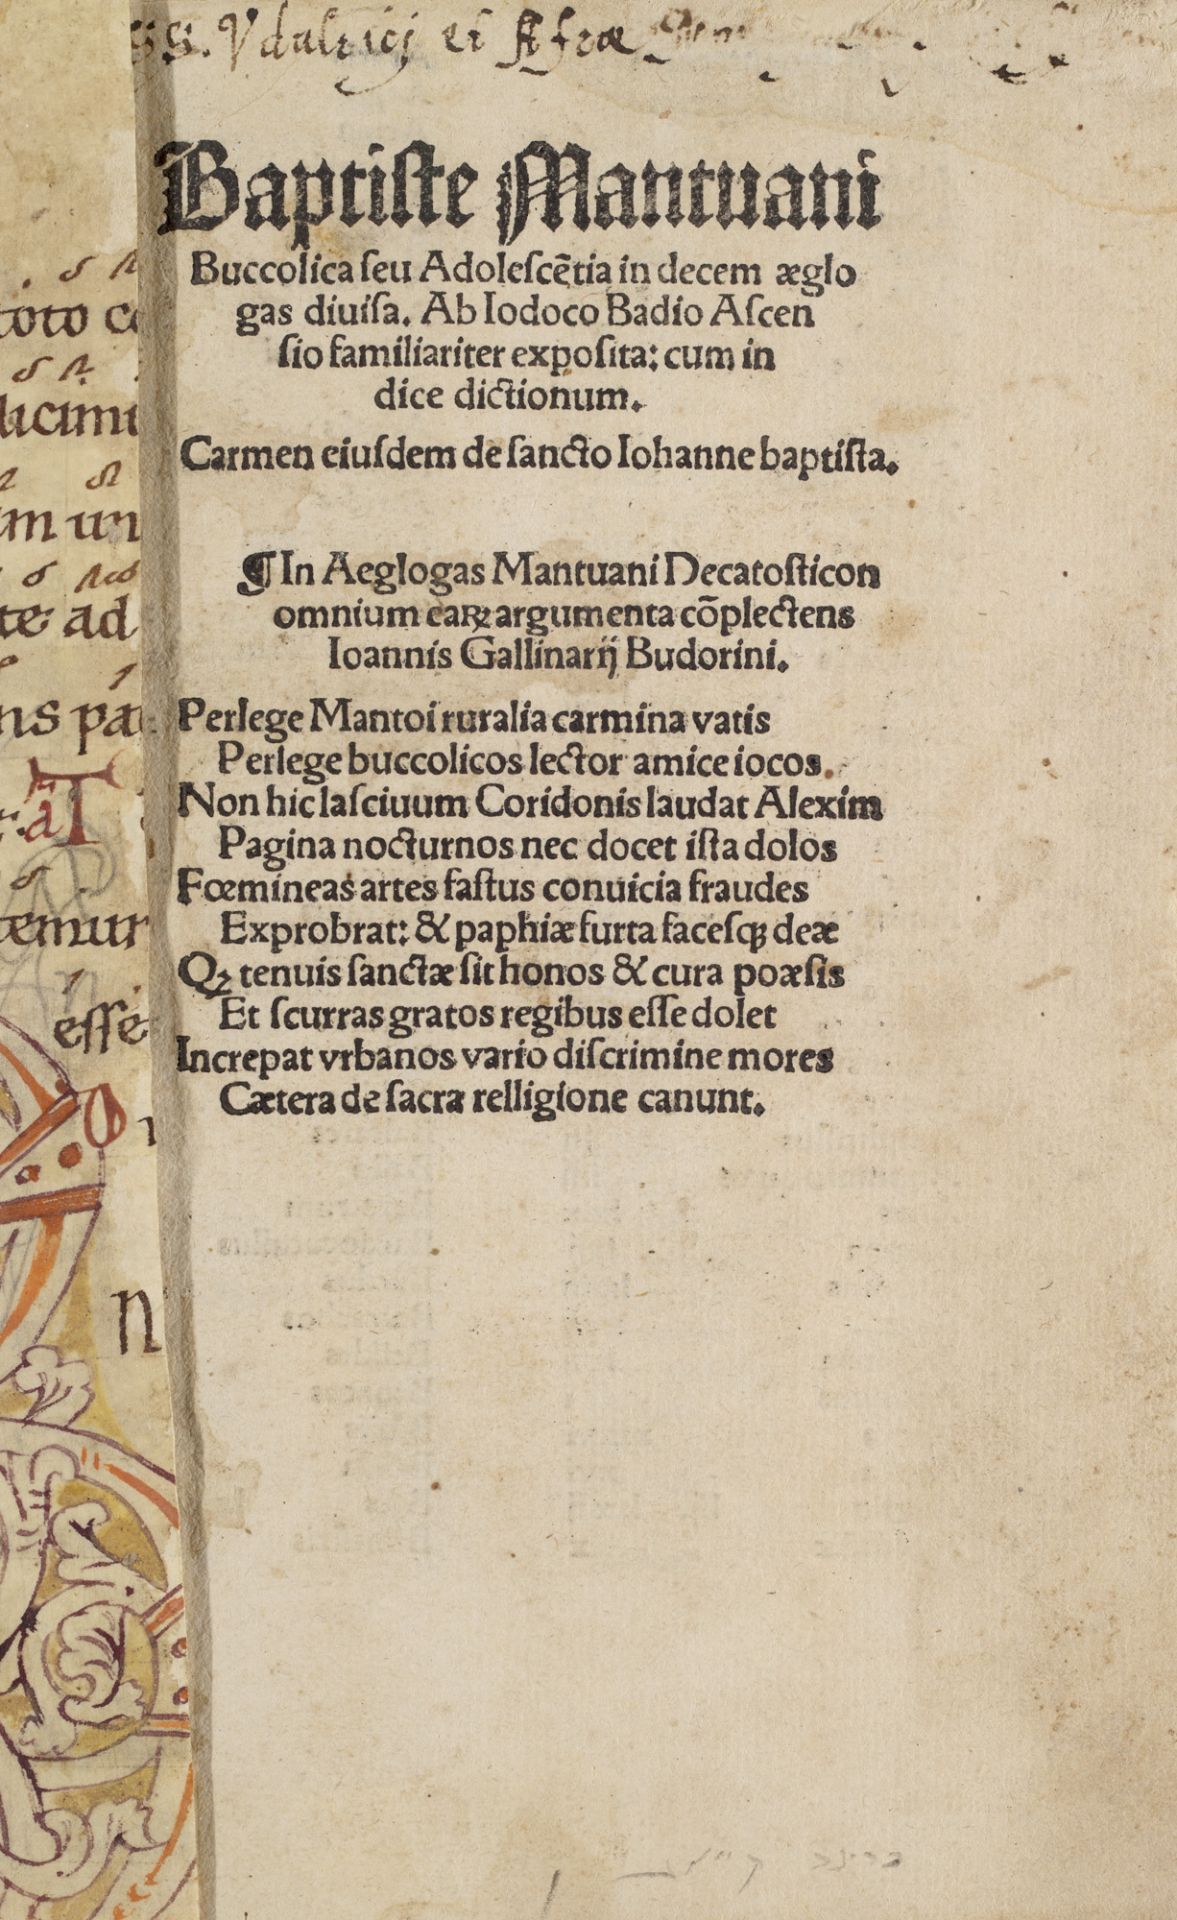 SS. Vdalrici et Afrae
Baptiste Mantuani
Buccolica ſeu Adoleſcẽtia in decem æglo
gas diuiſa. Ab Iodoco Badio Aſcen
ſio familiariter expoſita: cum in
dice dictionum.
Carmen eiuſdem de ſancto Iohanne baptiſta.
¶ In Aeglogas Mantuani Decatoſticon
omnium eaꝝ argumenta cõplectens
Ioannis Gallinarij Budorini.
Perlege Mantoi ruralia carmina vatis
Perlege buccolicos lector amice iocos.
Non hic laſciuum Coridonis laudat Alexim
Pagina nocturnos nec docet iſta dolos
Fœmineas artes faſtus conuicia fraudes
Exprobrat: & paphiæ furta faceſqꝫ deæ
Qꝫ tenuis ſanctæ ſit honos & cura poæſis
Et ſcurras gratos regibus eſſe dolet
Increpat vrbanos vario diſcrimine mores
Cætera de ſacra relligione canunt.
toto c
licimu
m un
te ad
ns pa
T
temur
eſſe
n